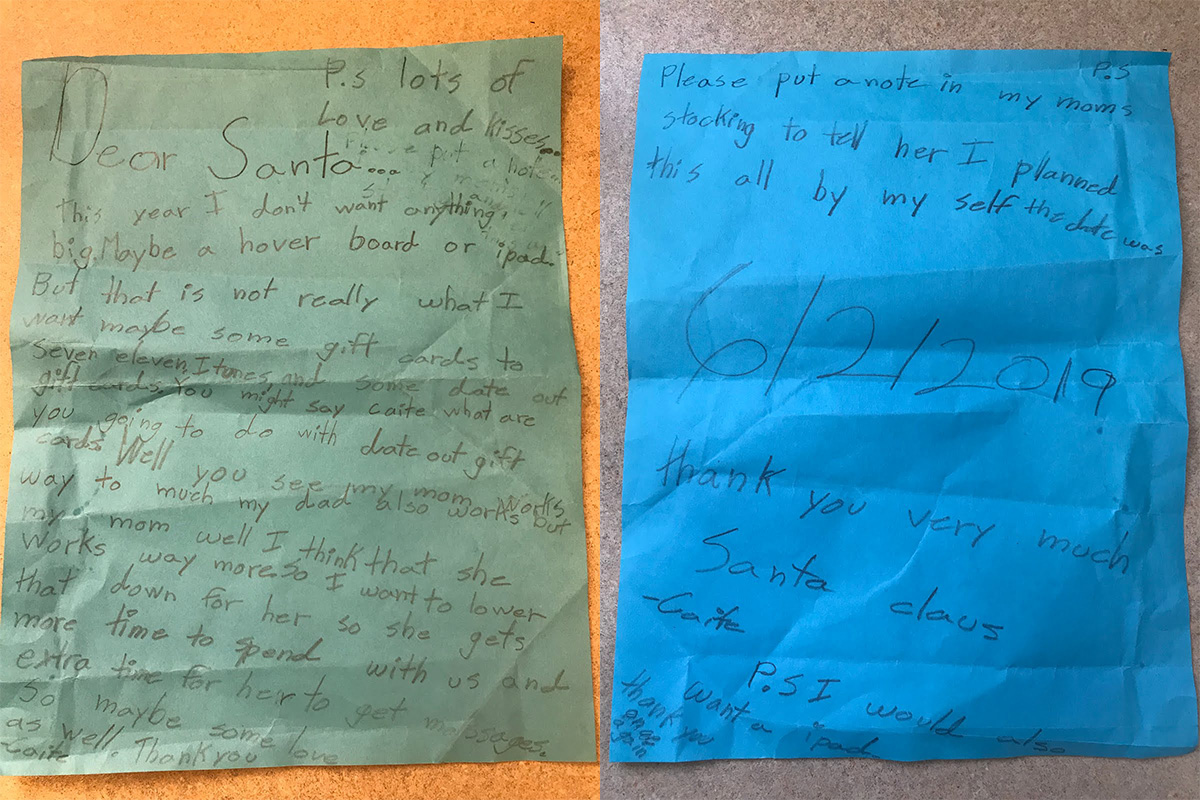 P.s lots of
Love and kisses..
Dear Santa...
put a note
this year I don't want anything
big. Maybe a hover board or ipad.
But that is not really what I
want maybe some gift cards to
seven eleven, Itunes, and some date out
gift cards. You might say caite what are
you going to do with date out gift
cards. Well you see my mom works
way to much my dad also works but
my mom well I think that she
works way more. so I want to lower
that down for her so she gets
more time to spend with us and
extra time for her to get massages.
So maybe some love
as well. Thank you
-Caite
P.S
Please put a note in my moms
stocking to tell her I planned
this all by my self the date was
6/2/2019
thank you very much
Santa claus
-Caite
P.S I would also
want a ipad
thank you